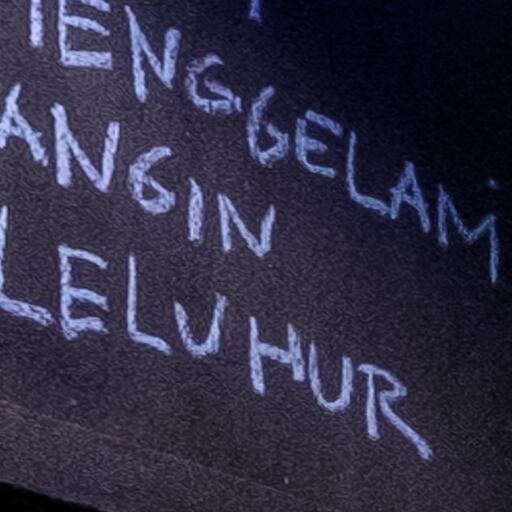 TENGGELAM
ANGIN
LELUHUR